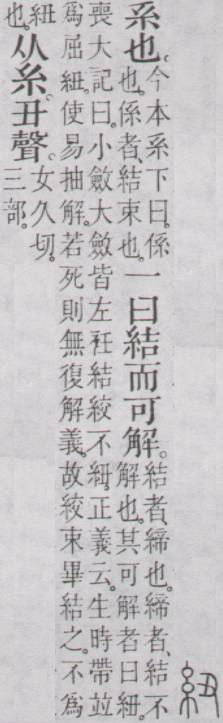 系也。今本系下曰。係也。係者、結束也。一曰結而可解。結者、締也。締者、結不解也。其可解者曰紐。
喪大記曰。小斂大斂皆左衽結絞不紐。正義云。生時帶竝爲屈紐。使易抽解。若死則無復解義。故絞束畢結之。不爲
紐也。从糸。丑聲。女久切。三部。
紐